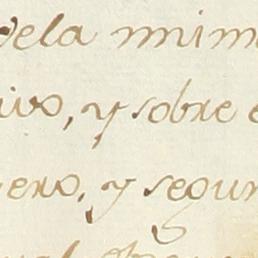 vela mim
ivo, y sobre e
ero, y segun